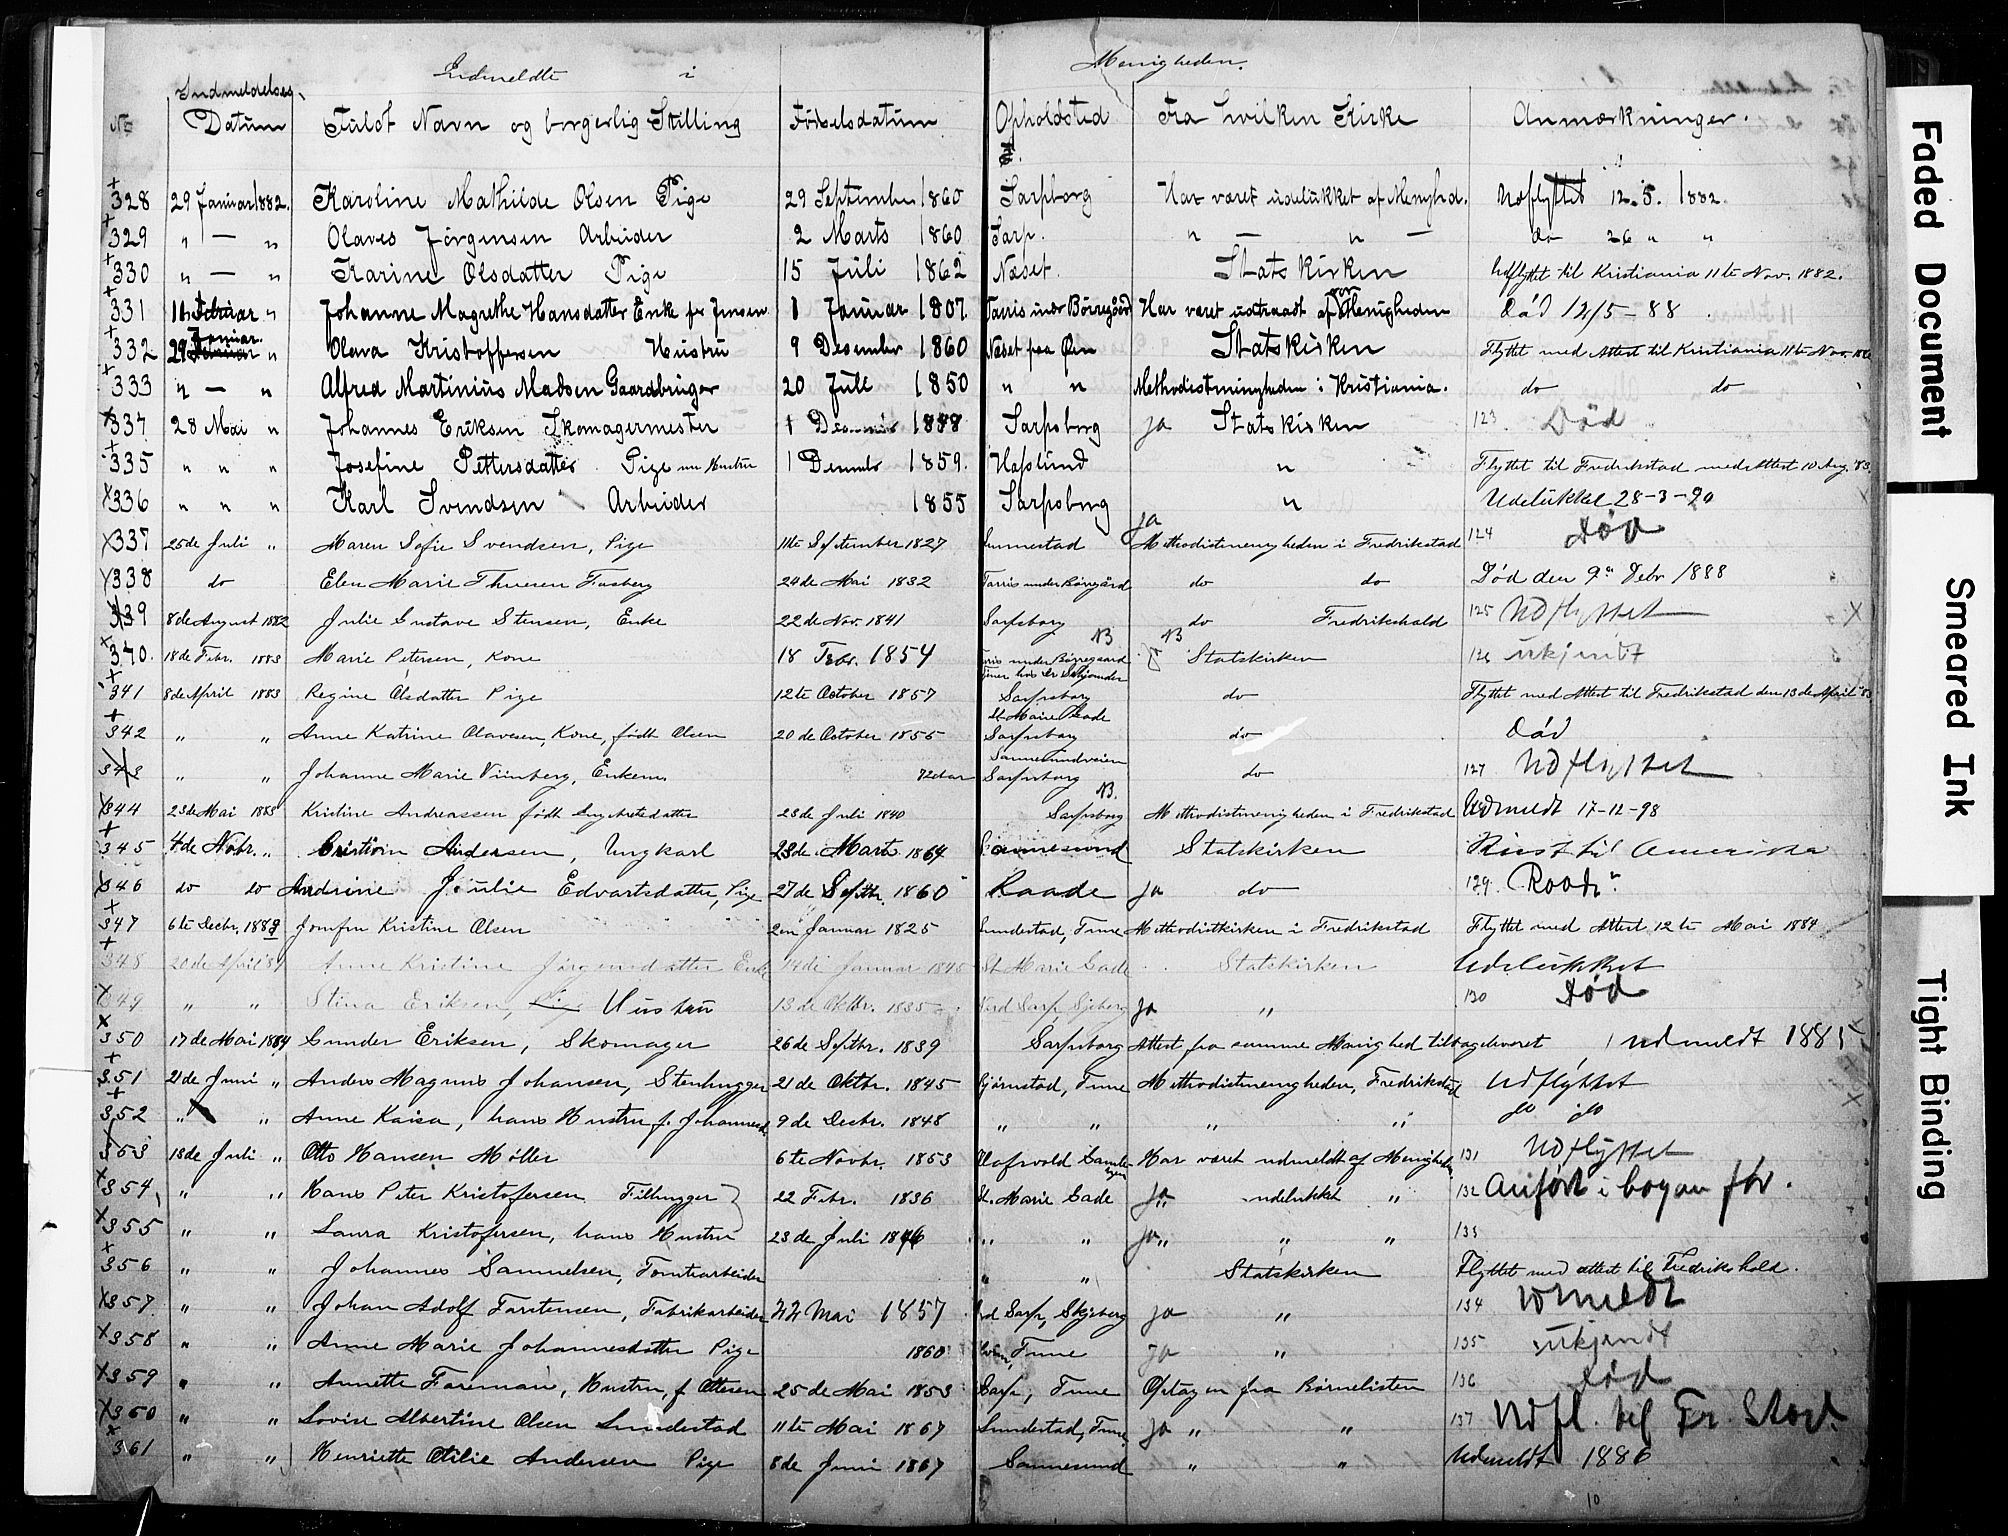 Indmeldte i Menigheden.
No Indmeldelses Datum Fuldt Navn og borgerlig Stilling Fødselsdatum Opholdsted Fra hvilken Kirke Anmærkninger.
328 29 Januar 1882. Karoline Mathilde Olsen Pige 29 September 1860 Sarpborg Har været udelukket af Menighd. Udflyttet 12.5. 1882.
329 " — " Olaves Jørgensen Arbeider 2 Marts 1860 Sarp. " — " — do 26 " "
330 " — " Karine Olsdatter Pige 15 Juli 1862 Næset. Statskirken Udflyttet til Kristiania 11te Nov. 1882.
331 Februar " Johanne Magrethe Hansdatter Enke før Jensen 1 Januar 1807. Tarris under Børregård Har været udtraadt af Menigheden Død 12/5-88
332 29 Januar " Olava Kristoffersen Hustru 9 Desember 1860 Næset paa Øen Statskirken Flyttet med Attest til Kristiania 11te Nov.
333 " — " Alfred Martinius Madsen Gaardbruger 20 Juli 1850 " " Methodistmenigheden i Kristiania. do do
334 28 Mai " Johannes Eriksen Skomagermester 1 Sarpsborg ja Statskirken 123 Død
335 " " " Josefine Pettersdatter Pige nu Hustru 1 1859. Hafslund " Flyttet til Fredrikstad med Attest 10 Aug. 83
336 " " " Karl Svendsen Arbeider 1855 Sarpsborg " Udelukket 28-3-90
337 25de Juli " Maren Sofie Svendsen, Pige 11te September 1827 ja Methodistmenigheden i Fredrikstad 124 Død
338 do Elen Marie Thuesen 24de Mai 1832 Tarris under Børregård do do Død den 9de Debr 1888
339 8de August 1882 Julie Gustave Stensen, Enke 22de Nov. 1841 Sarpsborg do Fredrikshald 125 Udflyttet
340. 18de Febr. 1883 Marie Petersen, Kone 18 Febr. 1854 Tarris under Børregaard NB ja NB Statskirken 126 ukjendt
341 8de April 1883 Regine Olsdatter Pige 12te October 1857 Sarpsborg do Flyttet med Attest til Fredrikstad den 13de April 83
342 " " Anne Katrine Olavesen, Kone, født Olsen 20de October 1855 St. Marie Gade Sarpsborg do Død
343 " " Johanne Marie Enkem 72de aar Sannesundveien Sarpsborg do 127 Udflyttet
344 23de Mai 1883 Kristine Andreassen født 23de Juli 1840 NB. Sarpsborg Methodistmenigheden i Fredrikstad Udmeldt 17-12-98
345 4de Novbr. " Cristian Andersen, Ungkarl 23de Marts 1864 Sannesund Statskirken Reist til Amerika
346 do do Andrine Joulie Edvartsdatter, Pige 27de Septbr. 1860 Raade ja do 129 Raade
347 6te Decbr. 1883 Jomfru Kristine Olsen 2en Januar 1825 Sundestad, Tune Methodistkirken i Fredrikstad Flyttet med Attest 12te Mai 1884
348 20de April 84 Anne Kristine Jørgensdatter Enke 14de Januar St. Marie Gade Statskirken Udelukket
349 " " Stina Eriksen, Pige Hustru 13de Oktbr. 1835 Nord Sarp, ja " 130 Død
350 17de Mai 1884 Gunder Eriksen, Skomager 26de Septbr. 1839 Sarpsborg Attest fra samme Menighed tilbageleveret udmeldt 1885
351 21de Juni " Anders Magnus Johansen, Stenhugger 21de Oktbr. 1845 Bjørnstad, Tune Methodistmenigheden, Fredrikstad Udflyttet
352 " " Anne Kaisa, hans Hustru f. Johannesd. 9de Decbr. 1848 " " " " do do
353 13de Juli " Otto Hansen Møller 6te Novbr. 1853 Har været udmeldt af Menigheden 131 Udflyttet
354 " " Hans Peter Kristofersen Filhugger 22 Febr. 1836 St. Marie Gade ja " udelukket " 132 Anført i bogen før.
355 " " Laura Kristofersen, hans Hustru 23de Juli 1846 " " ja " " " 133
356 " " Johannes Samuelsen, Tomtearbeider " " Statskirken Flyttet med attest til Fredrikshald.
357 " " Johan Adolf Torstensen, Fabrikarbeider 22 Mai 1857 Nord Sarp, Skjeberg ja " 134 Udmeldt
358 " " Anne Marie Johannesdatter Pige 1860 Tune ja " 135 ukjendt
359 " " Annette Foreman, Hustru, f. Ottesen 25de Mai 1853 Sarp, Tune Optagen fra Børnelisten 136 Død
360 " " Lovise Albertine Olsen Sundestad 11te Mai 1867 Sundestad, Tune ja " " 137 Udfl. til Fr. Stad.
361 " " Henriette Otilie Andersen Pige 8de Juni 1867 Sannesund " " Udmeldt 1886
10
Faded Document
Smeared Ink
Tight Binding